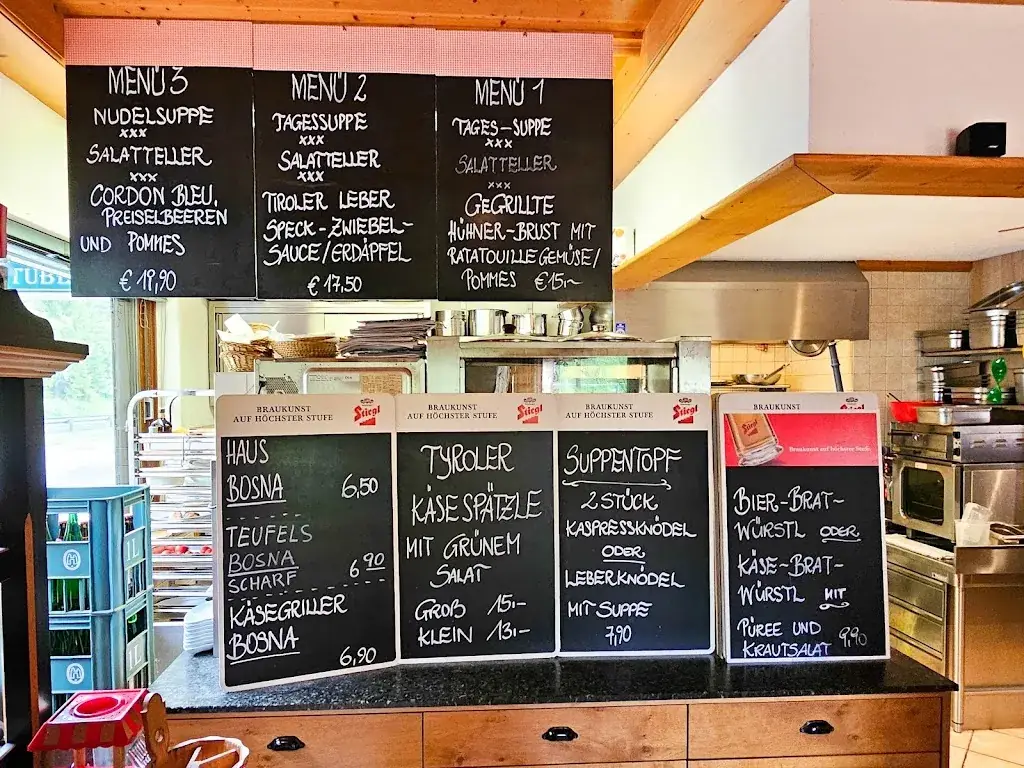 MENÜ 3
NUDELSUPPE
xxx
SALATTELLER
xxx
CORDON BLEU,
PREISELBEEREN
UND POMMES
€ 19,90
MENÜ 2
TAGESSUPPE
xxx
SALATTELLER
xxx
TIROLER LEBER
SPECK-ZWIEBEL-
SAUCE/ERDÄPFEL
€ 17,50
MENÜ 1
TAGES-SUPPE
xxx
SALATTELLER
xxx
GEGRILLTE
HÜHNER-BRUST MIT
RATATOUILLEGEMÜSE/
POMMES €15,-
BRAUKUNST
AUF HÖCHSTER STUFE
Stiegl
HAUS
BOSNA 6,50
TEUFELS
BOSNA
SCHARF 6,90
KÄSEGRILLER
BOSNA
6,90
BRAUKUNST
AUF HÖCHSTER STUFE
Stiegl
TYROLER
KÄSESPÄTZLE
MIT GRÜNEM
SALAT
GROß 15,-
KLEIN 13,-
BRAUKUNST
AUF HÖCHSTER STUFE
Stiegl
SUPPENTOPF
2 STÜCK
KASPRESSKNÖDEL
ODER
LEBERKNÖDEL
MIT SUPPE
7,90
BRAUKUNST
Stiegl
Braukunst auf höchster Stufe.
BIER-BRAT-
WÜRSTL ODER
KÄSE-BRAT-
WÜRSTL MIT
PÜREE UND
KRAUTSALAT 9,90
1L
1L